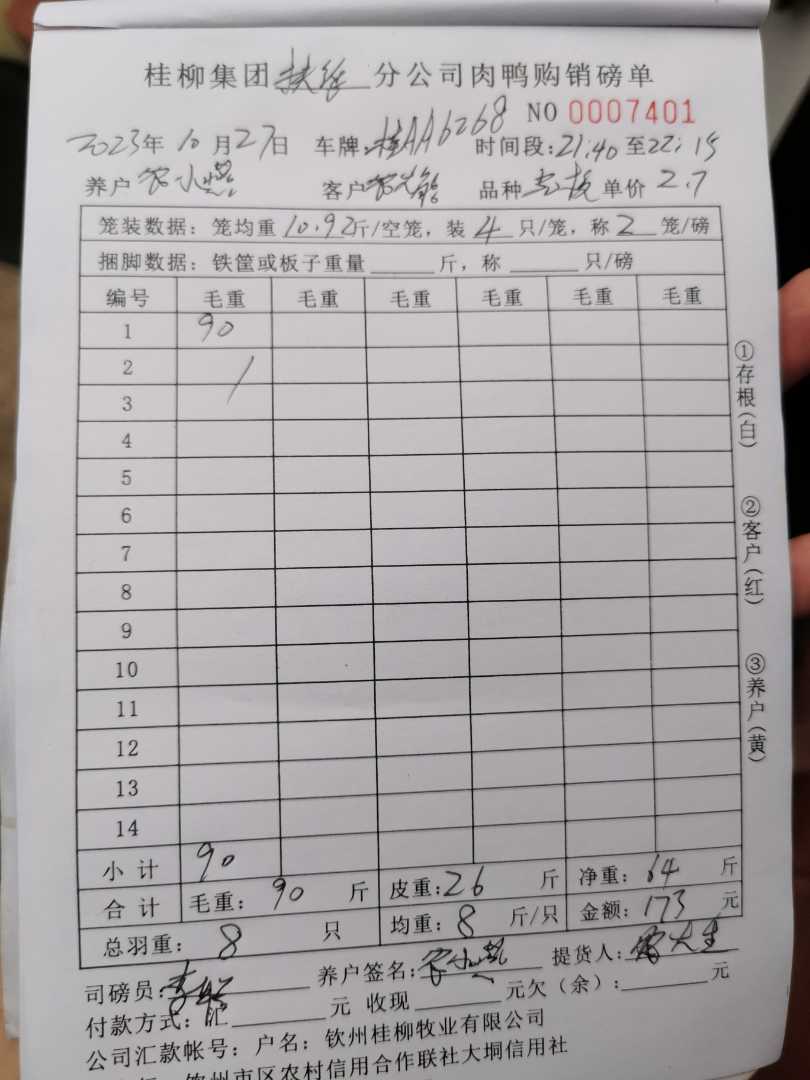 桂柳集团扶绥分公司肉鸭购销磅单
NO 0007401
2023年10月27日 车牌:桂AA6268 时间段:21:40至22:15
养户 农小燕 客户 品种 单价 2.7
笼装数据: 笼均重 10.92斤/空笼, 装 4 只/笼, 称 2 笼/磅
捆脚数据: 铁筐或板子重量 斤, 称 只/磅
编号 毛重 毛重 毛重 毛重 毛重 毛重
1 90
2 /
3
4
5
6
7
8
9
10
11
12
13
14
小计 90
合计 毛重: 90 斤 皮重: 26 斤 净重: 64 斤
总羽重: 8 只 均重: 8 斤/只 金额: 173 元
司磅员: 李 养户签名: 农小燕 提货人:
付款方式: 汇 元 收现 元欠(余): 元
公司汇款帐号: 户名: 钦州桂柳牧业有限公司
钦州市区农村信用合作联社大垌信用社
①存根(白)
②客户(红)
③养户(黄)